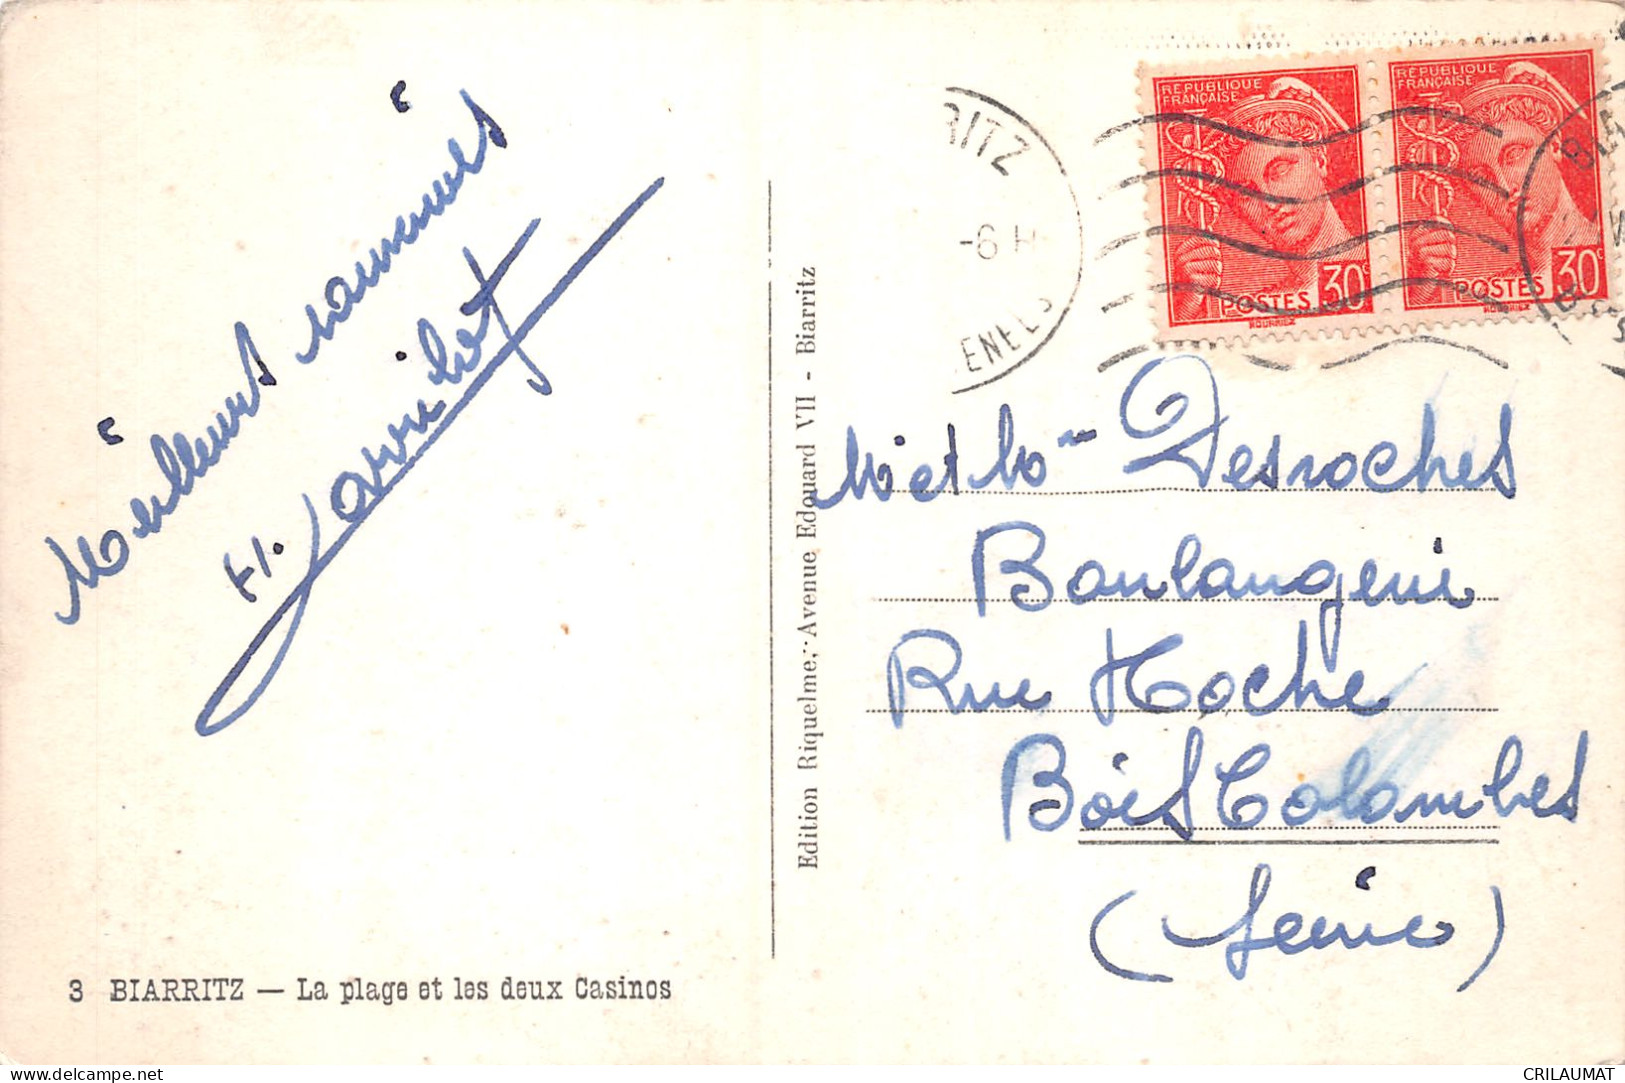 Meilleurs souvenirs
H.
3 BIARRITZ — La plage et les deux Casinos
Edition Riquelme, Avenue Edouard VII - Biarritz
RITZ
-6 H
ENEES
RÉPUBLIQUE
FRANÇAISE
POSTES 30c
HOURRIEZ
RÉPUBLIQUE
FRANÇAISE
POSTES 30c
HOURRIEZ
Mr et Mme Desroches
Boulangerie
Rue Hoche
Bois Colombes
(Seine)
delcampe.net
CRILAUMAT